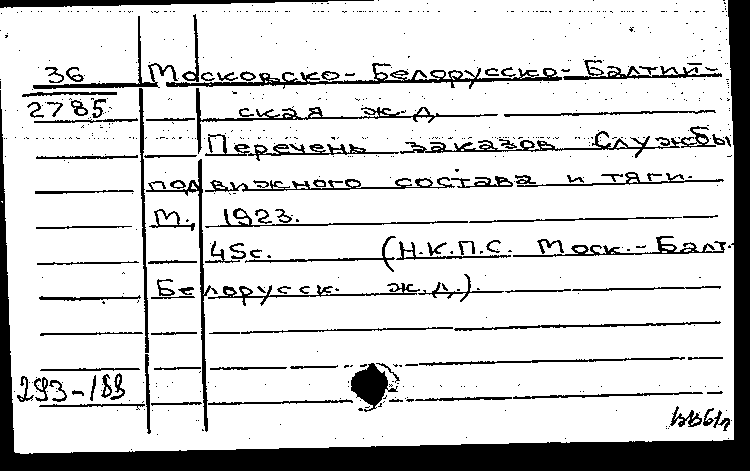 36 Московско-Белорусско-Балтий-
2785 ская ж.д.
Перечень заказов Службы
подвижного состава и тяги.
М., 1923.
45с. (Н.К.П.С. Моск.-Балт.
Белорусск. ж.д.).
293-188